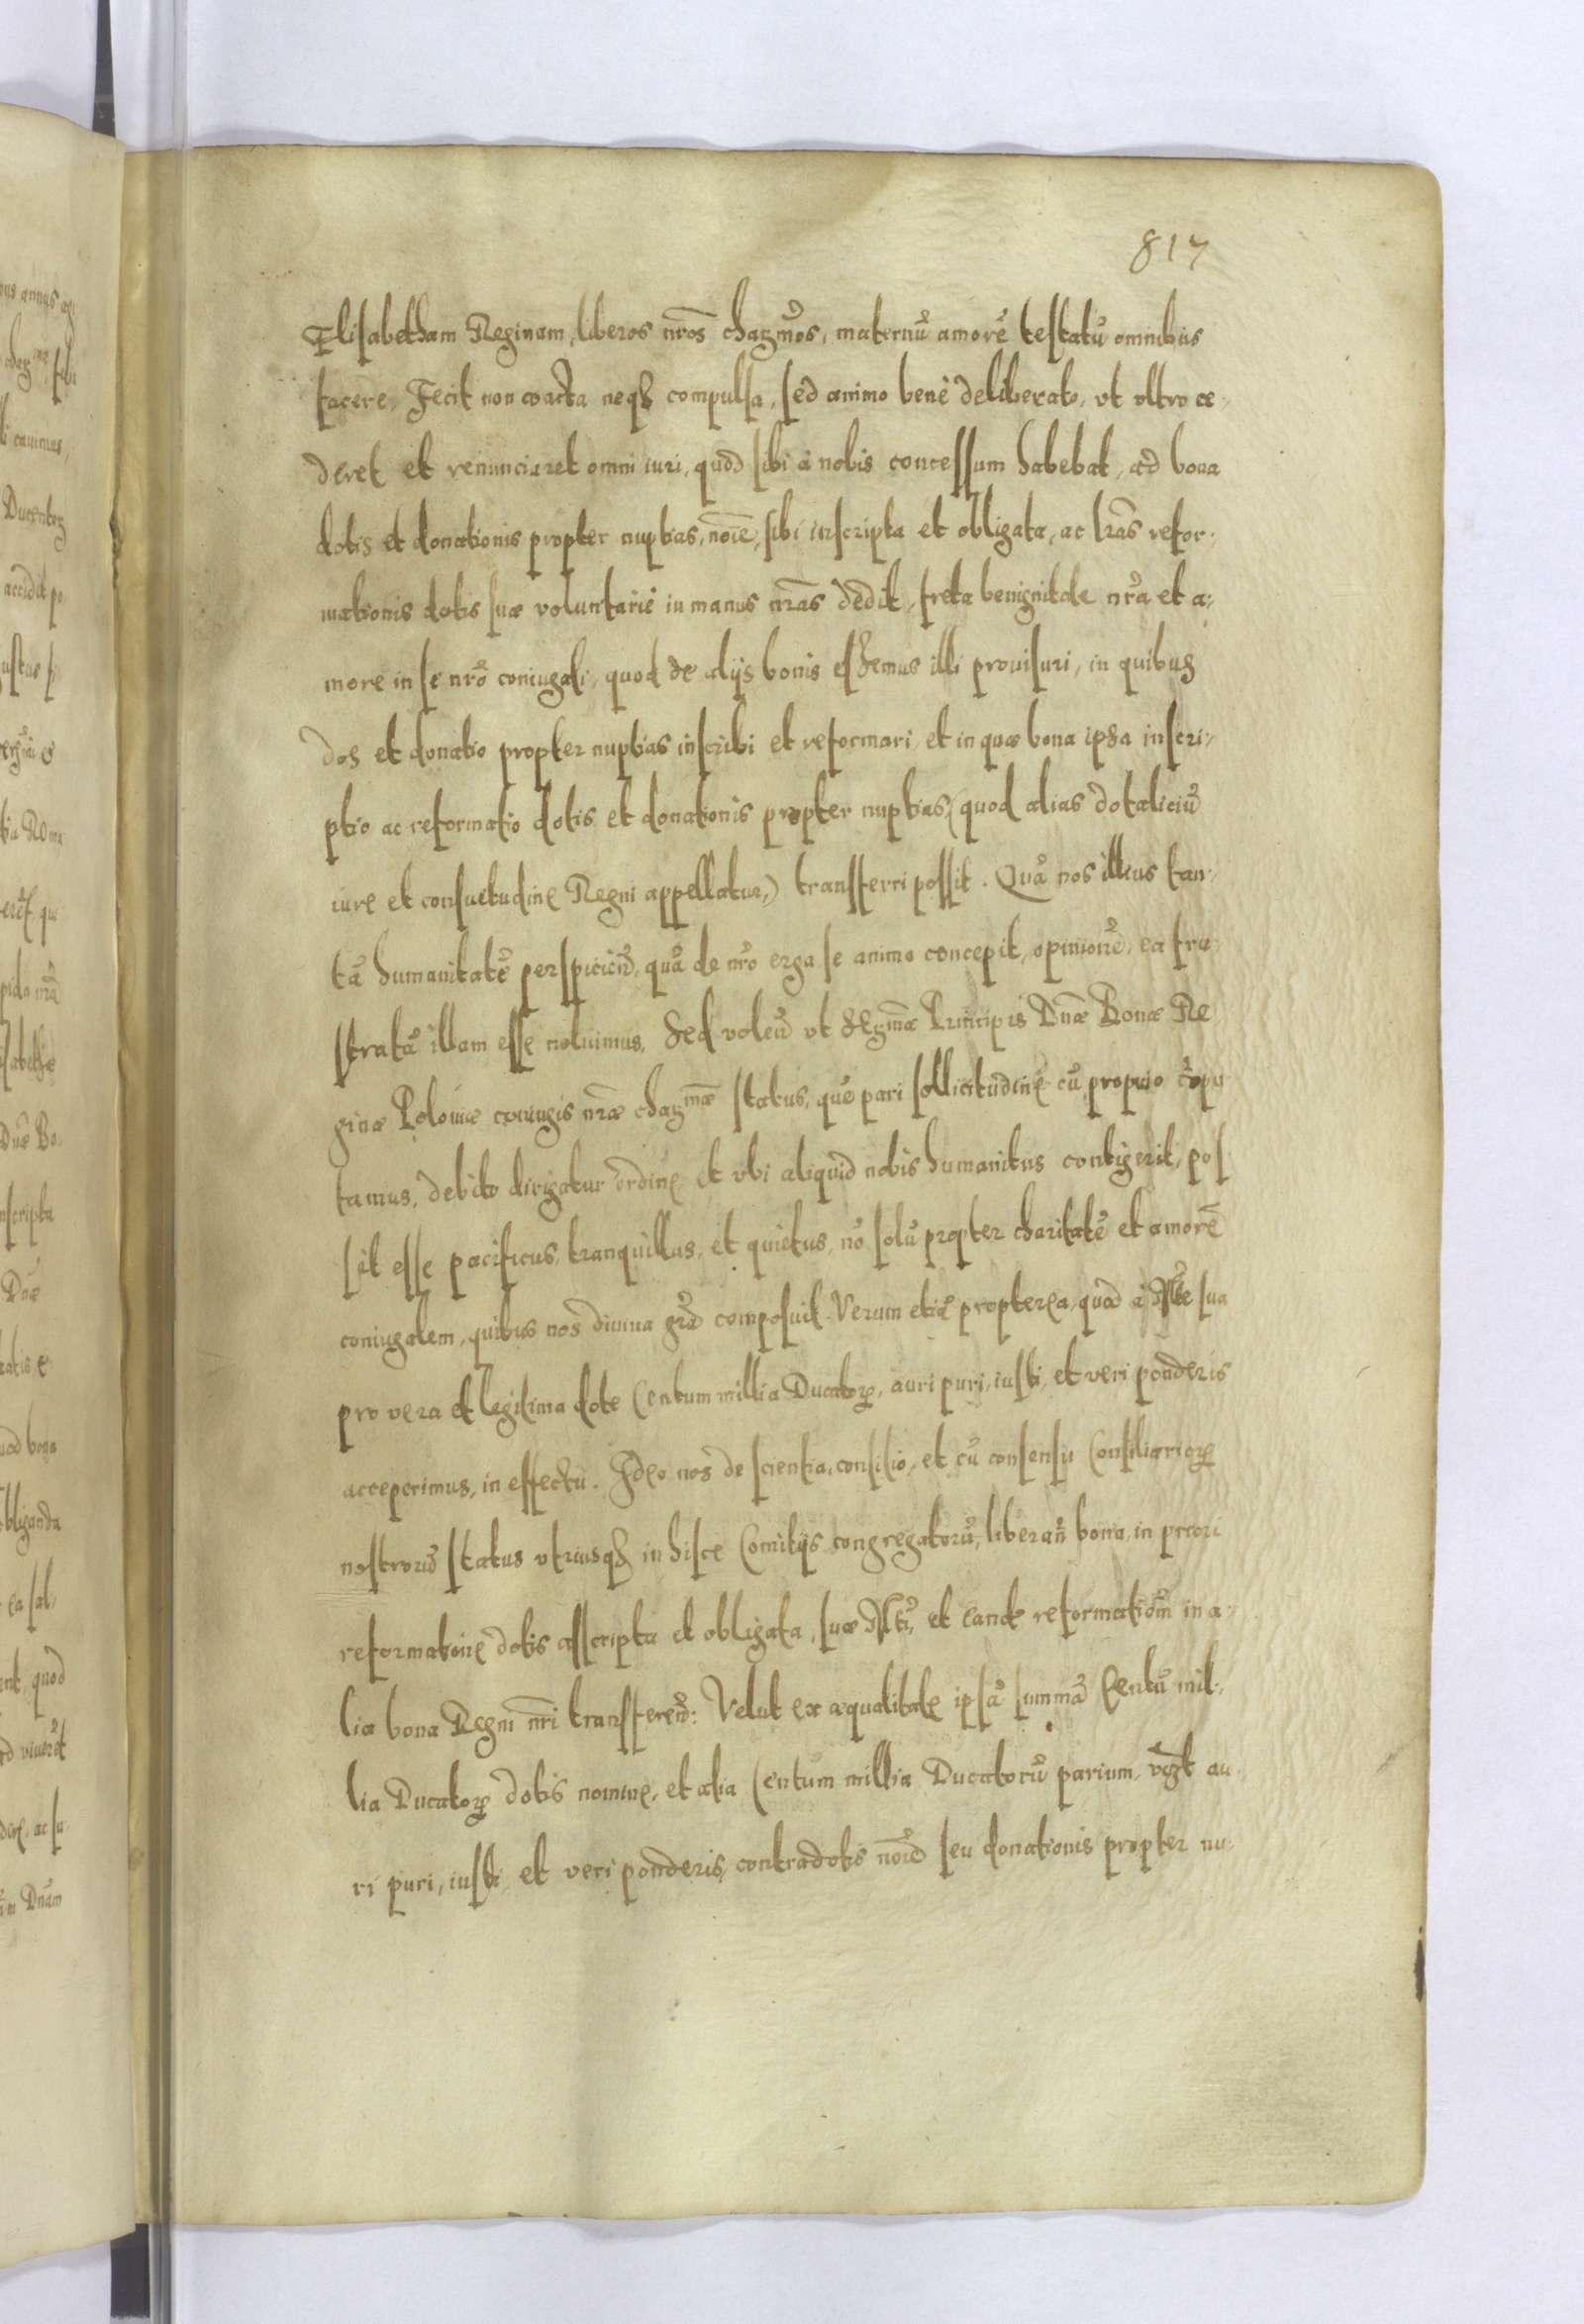 817
Elisabetham Reginam, liberos nros chazmos, maternũ amorẽ testatũ omnibus
facere, Fecit non coacta neqꝫ compulsa, sed animo benè deliberato, vt vltro ce,
deret et renunciaret omni iuri, quod sibi à nobis concessum habebat, ad bona
dotis et donationis propter nuptias, noie, sibi inscripta et obligata, ac lras refor,
mationis dotis suæ voluntariè in manus nras dedit, freta benignitate nra et a,
more in se nro coniugali, quod de alijs bonis essemus illi prouisuri, in quibus
dos et donatio propter nuptias inscribi et reformari, et in quæ bona ipsa inscri,
ptio ac reformatio dotis et donationis propter nuptias, (quod alias dotaliciũ
iure et consuetudine Regni appellatur,) transferri possit. Quã nos illius tan,
tã humanitatẽ perspicien̄, quã de nro erga se animo concepit, opinionẽ, ea fru
stratã illam esse noluimus, Sed volen̄ vt Segmæ Principis Dnæ Bonæ Re
ginæ Poloniæ coniugis nræ chazmæ status, quẽ pari sollicitudine cũ proprio cõpu
tamus, debito dirigatur ordine et vbi aliquid nobis humanitus contigerit, pos,
sit esse pacificus, tranquillus, et quietus, nõ solũ propter charitatẽ et amorẽ
coniugalem, quibus nos diuina gra composuit. Verum etiã propterea, quod à Mte sua
pro vera et legitima dote Centum millia Ducatoꝝ, auri puri, iusti, et veri ponderis
acceperimus, in effectu. Ideo nos de scientia, consilio, et cũ consensu Consiliarioꝝ
nostrorũ status vtriusqꝫ in hisce Comitijs congregatorũ, liberan̄ bona, in priori
reformatione dotis asscripta et obligata, suæ Mti, et eandẽ reformationẽ in a,
lia bona Regni nri transferen̄: Velut ex æqualitate ipsã summã Centũ mil,
lia Ducatoꝝ dotis nomine, et alia Centum millia Ducatorũ parium, vꝫt au
ri puri, iusti, et veri ponderis, contradotis noie seu donationis propter nu,